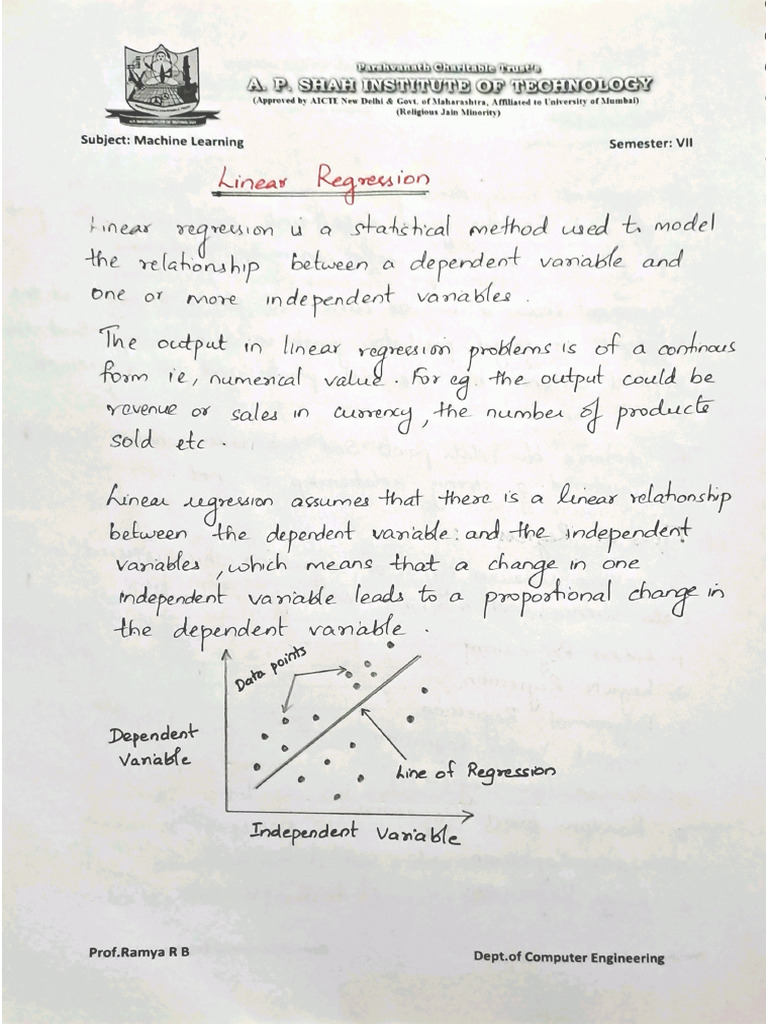 Parshvanath Charitable Trust's
A. P. SHAH INSTITUTE OF TECHNOLOGY
(Approved by AICTE New Delhi & Govt. of Maharashtra, Affiliated to University of Mumbai)
(Religious Jain Minority)
Subject: Machine Learning
Semester: VII
Linear Regression
Linear regression is a statistical method used to model
the relationship between a dependent variable and
one or more independent variables.
The output in linear regression problems is of a continous
form ie, numerical value. For eg. the output could be
revenue or sales in currency, the number of products
sold etc.
Linear regression assumes that there is a linear relationship
between the dependent variable and the independent
variables, which means that a change in one
independent variable leads to a proportional change in
the dependent variable.
Data points
Dependent
Variable
Line of Regression
Independent Variable
Prof.Ramya R B
Dept.of Computer Engineering